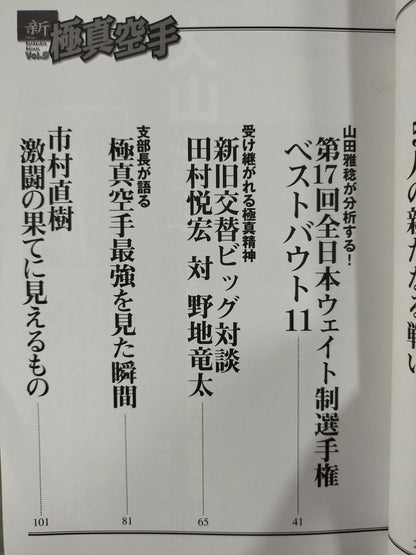 新
Vol.9
極真空手
人の新たなる戦い
山田雅稔が分析する！
第17回全日本ウェイト制選手権
ベストバウト11
41
受け継がれる極真精神
新旧交替ビッグ対談
田村悦宏 対 野地竜太
65
支部長が語る
極真空手最強を見た瞬間
81
市村直樹
激闘の果てに見えるもの
101